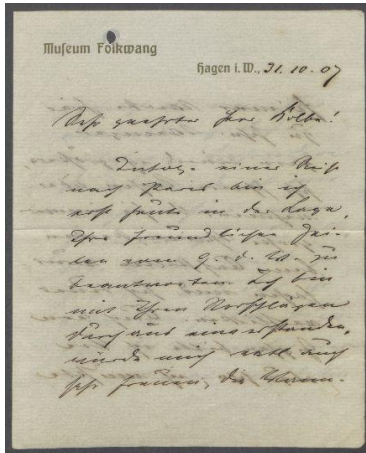 Museum Folkwang
Hagen i. W., 31. 10. 07
Sehr geehrter Herr Kolbe!
Infolge einer Reise
nach Paris bin ich
erst heute in der Lage,
Ihre freundlichen Zei-
len vom 9. d. M. zu
beantworten. Ich bin
mit Ihren Vorschlägen
durchaus einverstanden,
würde mich auch
sehr freuen, die